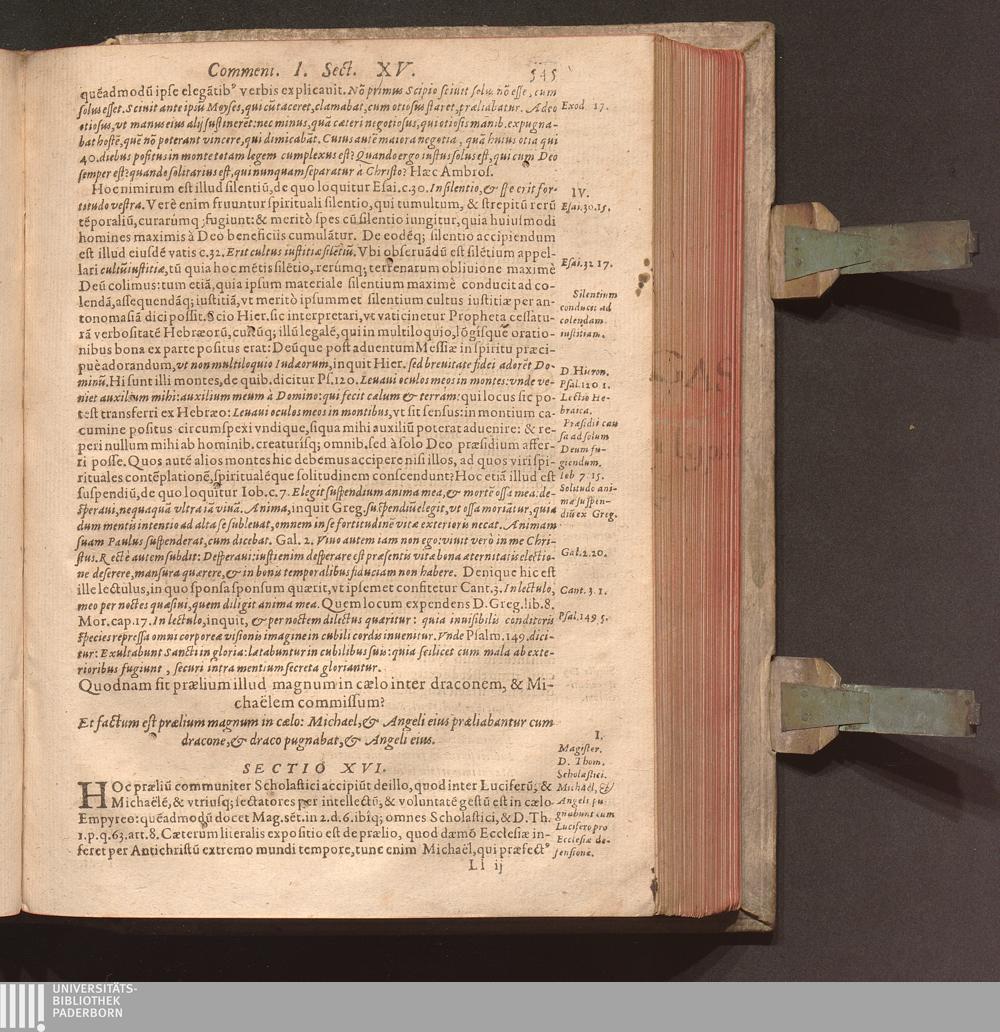 Comment. I. Sect. XV. 545
quēadmodū ipse elegātib⁹ verbis explicauit. Nō primus Scipio sciuit solus nō esse, cum
solus esset. Sciuit ante ipsū Moyses, qui cū taceret, clamabat, cum otiosus staret, præliabatur. Adeo
otiosus, vt manus eius alij sustinerēt: nec minus, quā cæteri negotiosus, qui otiosis manib. expugna-
bat hostē, quē nō poterant vincere, qui dimicabāt. Cuius autē maiora negotia, quā huius otia qui
40. diebus positus in monte totam legem cumplexus est? Quando ergo iustus solus est, qui cum Deo
semper est? quando solitarius est, qui nunquam separatur à Christo? Hæc Ambros.
Exod 17.
Hoc nimirum est illud silentiū, de quo loquitur Esai. c. 30. In silentio, & spe erit for-
titudo vestra. Verè enim fruuntur spirituali silentio, qui tumultum, & strepitū rerū
tēporaliū, curarumq; fugiunt: & meritò spes cū silentio iungitur, quia huiusmodi
homines maximis à Deo beneficiis cumulātur. De eodēq; silentio accipiendum
est illud eiusdē vatis c. 32. Erit cultus iustitiæ silētiū. Vbi obseruādū est silētium appel-
lari cultū iustitiæ, tū quia hoc mētis silētio, rerumq; terrenarum obliuione maximè
Deū colimus: tum etiā, quia ipsum materiale silentium maximè conducit ad co-
lendā, assequendāq; iustitiā, vt meritò ipsummet silentium cultus iustitiæ per an-
tonomasiā dici possit. Scio Hier. sic interpretari, vt vaticinetur Propheta cessatu-
rā verbositatē Hebræorū, cultūq; illū legalē, qui in multiloquio, lōgisque oratio-
nibus bona ex parte positus erat: Deūque post aduentum Messiæ in spiritu præci-
puè adorandum, vt non multiloquio Iudæorum, inquit Hier. sed breuitate fidei adorēt Do-
minū. Hi sunt illi montes, de quib. dicitur Ps. 120. Leuaui oculos meos in montes: vnde ve-
niet auxilium mihi: auxilium meum à Domino: qui fecit cælum & terram: qui locus sic po-
test transferri ex Hebræo: Leuaui oculos meos in montibus, vt sit sensus: in montium ca-
cumine positus circumspexi vndique, si qua mihi auxiliū poterat aduenire: & re-
peri nullum mihi ab hominib. creaturisq; omnib. sed à solo Deo præsidium affer-
ri posse. Quos autē alios montes hic debemus accipere nisi illos, ad quos viri spi-
rituales contēplationē, spiritualéque solitudinem conscendunt? Hoc etiā illud est
suspendiū, de quo loquitur Iob. c. 7. Elegit suspendium anima mea, & mortē ossa mea: de-
speraui, nequaquā vltra iā viuā. Anima, inquit Greg. suspendiū elegit, vt ossa moriātur, quia
dum mentis intentio ad alta se subleuat, omnem in se fortitudinē vitæ exterioris necat. Animam
suam Paulus suspenderat, cum dicebat. Gal. 2. Viuo autem iam non ego: viuit verò in me Chri-
stus. Rectè autem subdit: Desperaui: iusti enim desperare est præsentis vitæ bona æternitatis electio-
ne deserere, mansura quærere, & in bonis temporalibus fiduciam non habere. Denique hic est
ille lectulus, in quo sponsa sponsum quærit, vt ipsemet confitetur Cant. 3. In lectulo,
meo per noctes quæsiui, quem diligit anima mea. Quem locum expendens D. Greg. lib. 8.
Mor. cap. 17. In lectulo, inquit, & per noctem dilectus quæritur: quia inuisibilis conditoris
species repressa omni corporeæ visionis imagine in cubili cordis inuenitur. Vnde Psalm. 149. dici-
tur: Exultabunt Sancti in gloria: lætabuntur in cubilibus suis: quia scilicet cum mala ab exte-
rioribus fugiunt, securi intra mentium secreta gloriantur.
IV.
Esai. 30. 15.
Esai. 32 17.
Silentium
conducit ad
colendam
iustitiam.
D. Hieron.
Psal. 120 1.
Lectio He-
braica.
Præsidii cau
sa ad solum
Deum fu-
giendum.
Iob 7. 15.
Solitudo ani-
mæ suspen-
diū ex Greg.
Gal. 2. 20.
Cant. 3. 1.
Psal. 149 5.
Quodnam sit prælium illud magnum in cælo inter draconem, & Mi-
chaëlem commissum?
Et factum est prælium magnum in cælo: Michael, & Angeli eius præliabantur cum
dracone, & draco pugnabat, & Angeli eius.
SECTIO XVI.
HOc præliū communiter Scholastici accipiūt de illo, quod inter Luciferū, &
Michaëlē, & vtriusq; sectatores per intellectū, & voluntatē gestū est in cælo
Empyreo: quēadmodū docet Mag. sēt. in 2. d. 6. ibiq; omnes Scholastici, & D. Th.
1. p. q. 63. art. 8. Cæterum literalis expositio est de prælio, quod dæmō Ecclesiæ in-
feret per Antichristū extremo mundi tempore, tunc enim Michaël, qui præfect⁹
I.
Magister.
D. Thom.
Scholastici.
Michaël, &
Angeli pu-
gnabunt cum
Lucifero pro
Ecclesiæ de-
fensione.
Ll ij
UNIVERSITÄTS-
BIBLIOTHEK
PADERBORN